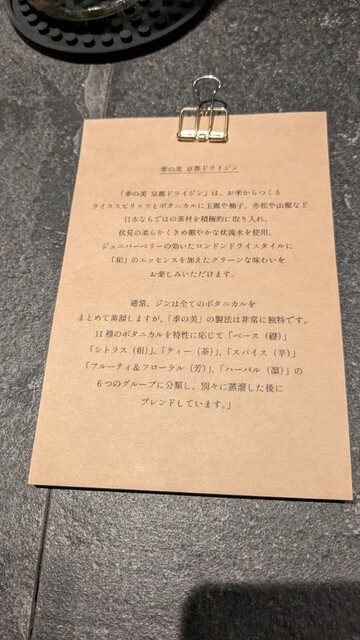 季の美 京都ドライジン
「季の美 京都ドライジン」は、お米からつくる
ライススピリッツとボタニカルに玉露や柚子、赤松や山椒など
日本ならではの素材を積極的に取り入れ、
伏見の柔らかくきめ細やかな伏流水を使用。
ジュニパーベリーの効いたロンドンドライスタイルに
「和」のエッセンスを加えたクリーンな味わいを
お楽しみいただけます。
通常、ジンは全てのボタニカルを
まとめて蒸溜しますが、「季の美」の製法は非常に独特です。
11種のボタニカルを特性に応じて「ベース（礎）」
「シトラス（柑）」、「ティー（茶）」、「スパイス（辛）」
「フルーティ＆フローラル（芳）」、「ハーバル（凛）」の
6つのグループに分類し、別々に蒸溜した後に
ブレンドしています。」